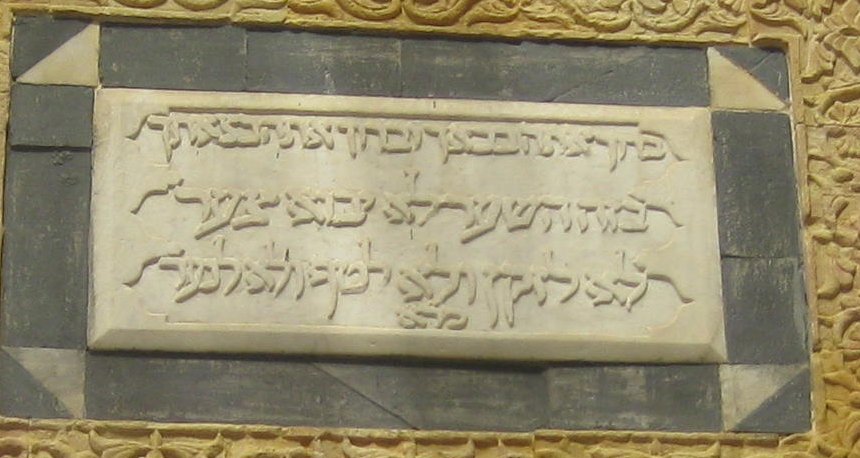 ברוך אתה בבאך וברוך אתה בצאתך
בזה השער לא יבוא צער
לא לזקן ולא לטף ולא לנער